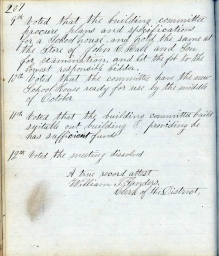 201
9th Voted that the building committee
procure plans and specifications
for a School house, and hold the same at
the Store of John C. Hall and Son
for examination, and let the job to the
lowest responsible bidder.
10th Voted that the committee have the new
School house ready for use by the middle
of October
11th Voted that the building committee build
suitable out building &c. providing he
has sufficient funds
12th Voted the meeting dissolved
A true record attest
William
Clerk of the District.